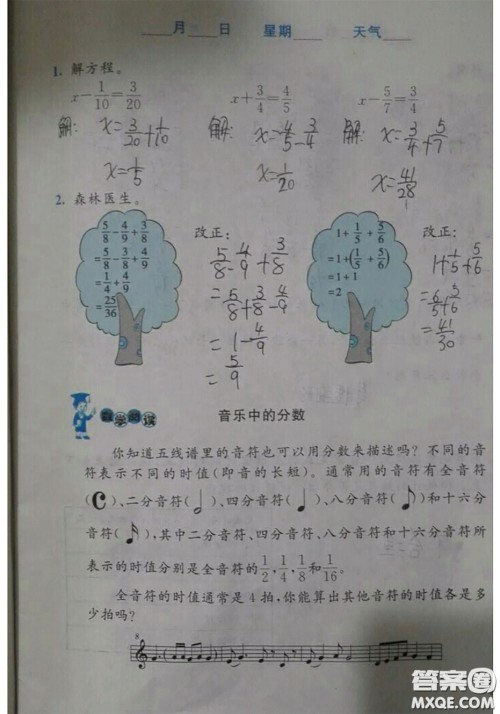 ____月____日 星期____ 天气____
1. 解方程。
x-1/10=3/20 x+3/4=4/5 x-5/7=3/4
解: x=3/20+1/10 解: x=4/5-3/4 解: x=3/4+5/7
x=1/5 x=1/20 x=41/28
2. 森林医生。
5/8-4/9+3/8
=5/8-3/8+4/9
=1/4+4/9
=25/36
改正:
5/8-4/9+3/8
=5/8+3/8-4/9
=1-4/9
=5/9
1+1/5+5/6
=1+(1/5+5/6)
=1+1
=2
改正:
1+1/5+5/6
=6/5+5/6
=41/30
数学阅读
音乐中的分数
你知道五线谱里的音符也可以用分数来描述吗?不同的音
符表示不同的时值(即音的长短)。通常用的音符有全音符
( )、二分音符(♩)、四分音符(♩)、八分音符(♪)和十六分
音符( ),其中二分音符、四分音符、八分音符和十六分音符所
表示的时值分别是全音符的1/2,1/4,1/8和1/16。
全音符的时值通常是 4 拍,你能算出其他音符的时值各是多
少拍吗?
8
答案圈
MXQE.COM